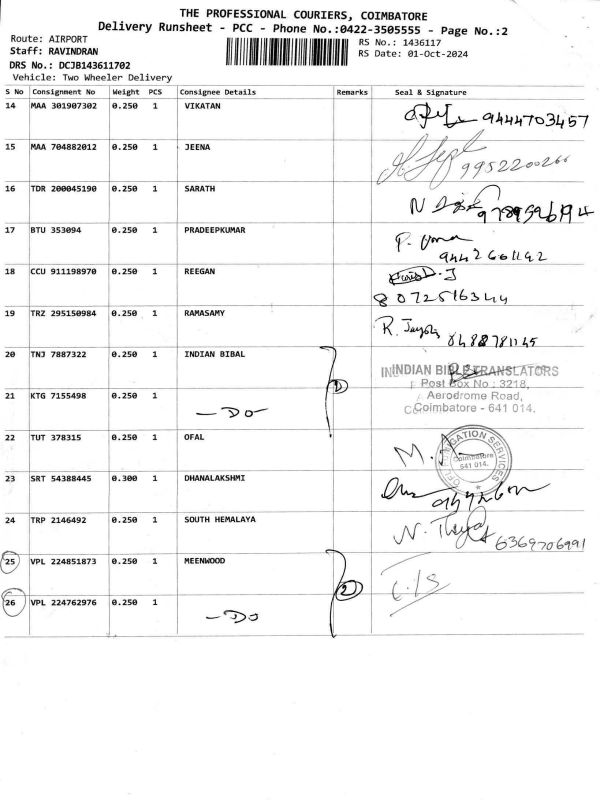 THE PROFESSIONAL COURIERS, COIMBATORE
Delivery Runsheet - PCC - Phone No.:0422-3505555 - Page No.:2
Route: AIRPORT
RS No.: 1436117
Staff: RAVINDRAN
RS Date: 01-Oct-2024
DRS No.: DCJB143611702
Vehicle: Two Wheeler Delivery
S No Consignment No Weight PCS Consignee Details Remarks Seal & Signature
14 MAA 301907302 0.250 1 VIKATAN 9444703457
15 MAA 704882012 0.250 1 JEENA 9952200266
16 TDR 200045190 0.250 1 SARATH N
17 BTU 353094 0.250 1 PRADEEPKUMAR P. Uma
9442601142
18 CCU 911198970 0.250 1 REEGAN
8072516344
19 TRZ 295150984 0.250 1 RAMASAMY R.
20 TNJ 7887322 0.250 1 INDIAN BIBAL 1 INDIAN BIBLE TRANSLATORS
Post Box No : 3218,
21 KTG 7155498 0.250 1 - DO - Aerodrome Road,
Coimbatore - 641 014.
22 TUT 378315 0.250 1 OFAL M. Coimbatore
641 014.
23 SRT 54388445 0.300 1 DHANALAKSHMI
24 TRP 2146492 0.250 1 SOUTH HEMALAYA N. 6369706991
25 VPL 224851873 0.250 1 MEENWOOD 2
26 VPL 224762976 0.250 1 - DO